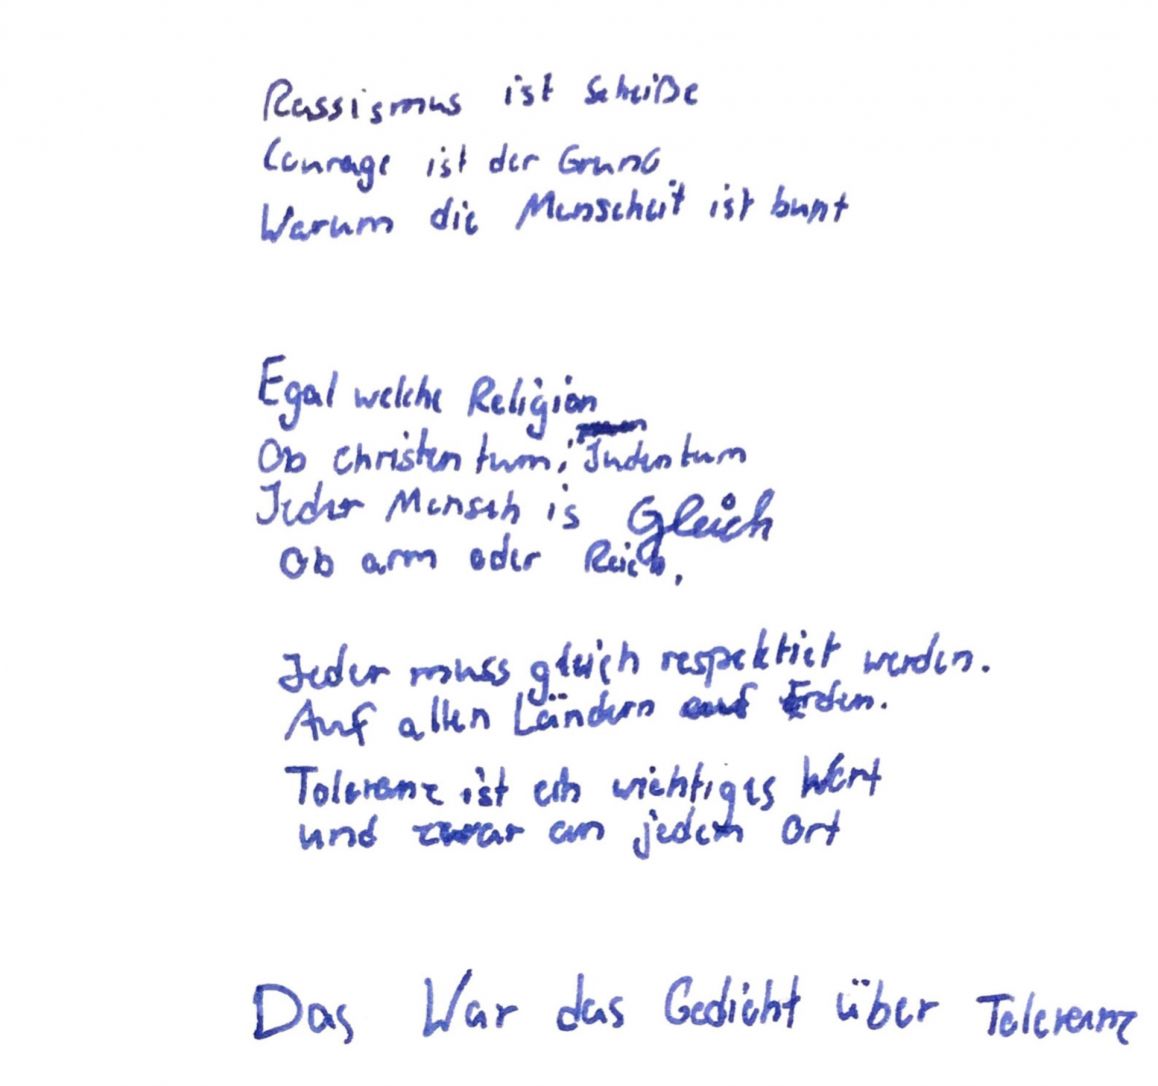 Rassismus ist Scheiße
Courage ist der Grund
Warum die Menscheit ist bunt
Egal welche Religion
Ob christentum, Judentum
Jeder Mensch is Gleich
Ob arm oder Reich,
Jeder muss gleich respektiet werden.
Auf allen Ländern auf Erden.
Toleranz ist ein wichtiges Wert
und zwar an jedem Ort
Das War das Gedicht über Toleranz